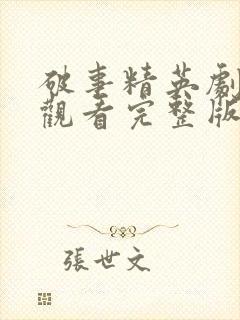 破事精英劇
觀看完整版
張世文